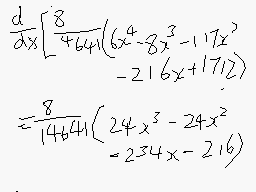 d/dx [ 8/14641 (6x⁴ - 8x³ - 117x²
- 216x + 1712)
= 8/14641 ( 24x³ - 24x²
- 234x - 216)